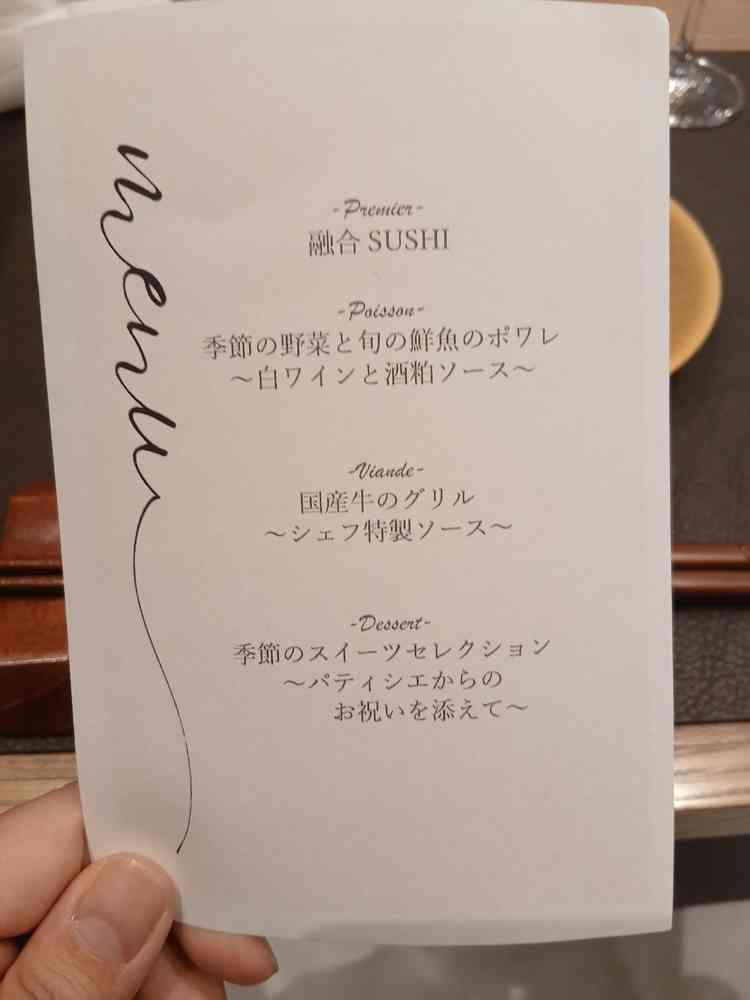 menu
-Premier-
融合 SUSHI
-Poisson-
季節の野菜と旬の鮮魚のポワレ
～白ワインと酒粕ソース～
-Viande-
国産牛のグリル
～シェフ特製ソース～
-Dessert-
季節のスイーツセレクション
～パティシエからの
お祝いを添えて～